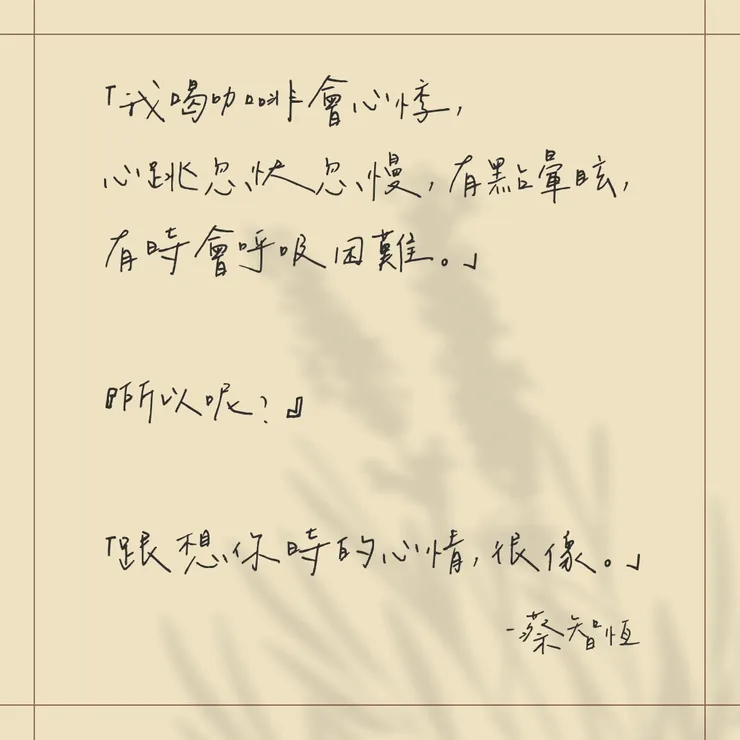 「我喝咖啡會心悸,
心跳忽快忽慢,有點暈眩,
有時會呼吸困難。」
『所以呢?』
「跟想你時的心情,很像。」
-蔡智恆